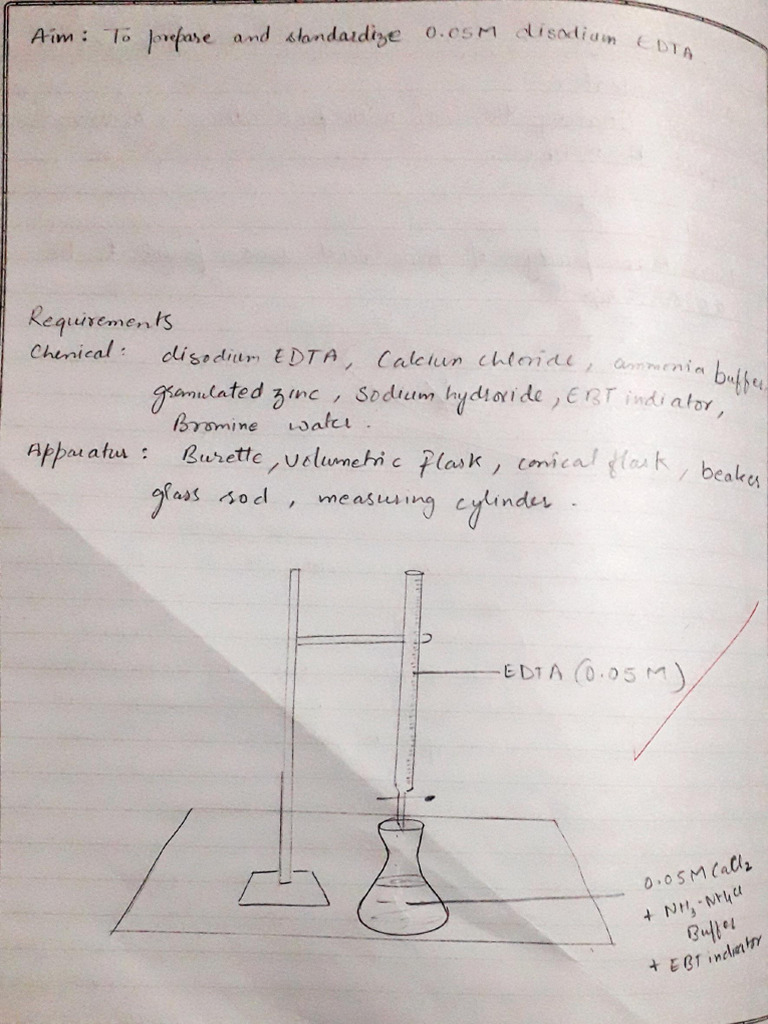 Aim: To prepare and standardize 0.05M disodium EDTA
Requirements
Chemical: disodium EDTA, Calcium chloride, ammonia buffer,
granulated zinc, Sodium hydroxide, EBT indiator,
Bromine water.
Apparatus: Burette, Volumetric flask, conical flask, beaker
glass rod, measuring cylinder.
EDTA (0.05 M)
0.05M CaCl2
+ NH3-NH4Cl
Buffer
+ EBT indicator